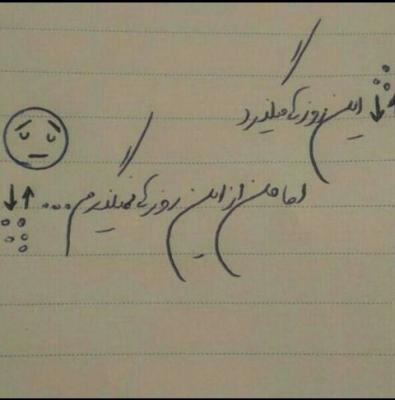 این روزها میگذرد
اما من از این روزها نمیگذرم...